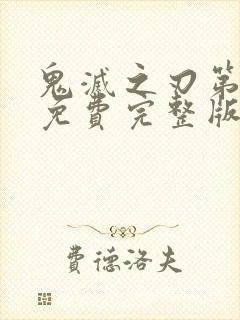 鬼滅之刃第
免費完整版
費德洛夫